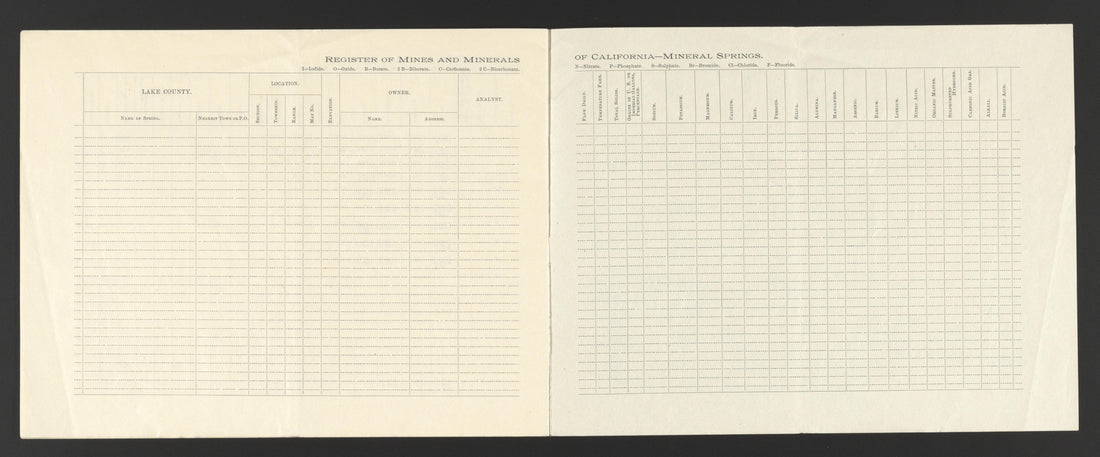 REGISTER OF MINES AND MINERALS
I—Iodide. O—Oxide. B—Borate. 2 B—Biborate. C—Carbonate. 2 C—Bicarbonate.
LAKE COUNTY.
LOCATION.
OWNER.
ANALYST.
NAME OF SPRING.
NEAREST TOWN OR P.O.
SECTION.
TOWNSHIP.
RANGE.
MAP NO.
ELEVATION.
NAME.
ADDRESS.
OF CALIFORNIA—MINERAL SPRINGS.
N—Nitrate. P—Phosphate. S—Sulphate. Br—Bromide. Cl—Chloride. F—Fluoride.
FLOW DAILY.
TEMPERATURE FAHR.
TOTAL SOLIDS.
GRAINS IN U. S. OR
IMPERIAL GALLONS,
PERCENTAGE.
SODIUM.
POTASSIUM.
MAGNESIUM.
CALCIUM.
IRON.
FERROUS.
SILICA.
ALUMINA.
MANGANESE.
ARSENIC.
BARIUM.
LITHIUM.
NITRIC ACID.
ORGANIC MATTER.
SULPHURETTED
HYDROGEN.
CARBONIC ACID GAS.
ALKALI.
BORACIC ACID.